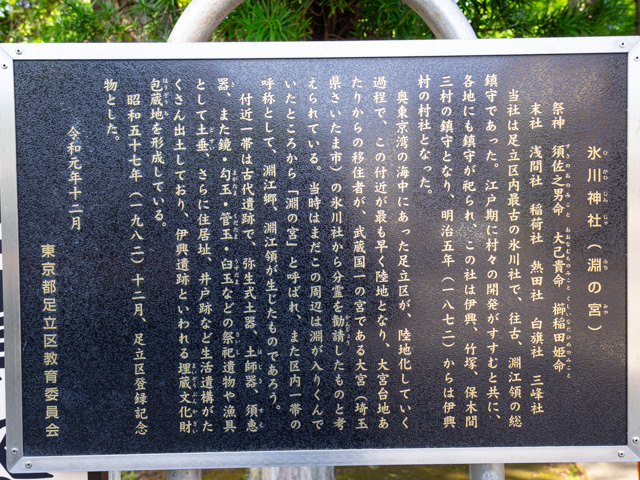 氷川神社（淵の宮）
祭神　須佐之男命　大己貴命　櫛稲田姫命
末社　浅間社　稲荷社　熱田社　白旗社　三峰社
当社は足立区内最古の氷川社で、往古、淵江領の総
鎮守であった。江戸期に村々の開発がすすむと共に、
各地にも鎮守が祀られ、この社は伊興、竹塚、保木間
三村の鎮守となり、明治五年（一八七二）からは伊興
村の村社となった。
奥東京湾の海中にあった足立区が、陸地化していく
過程で、この付近が最も早く陸地となり、大宮台地あ
たりからの移住者が、武蔵国一の宮である大宮（埼玉
県さいたま市）の氷川社から分霊を勧請したものと考
えられている。当時はまだこの周辺は淵が入りくんで
いたところから「淵の宮」と呼ばれ、また区内一帯の
呼称として、淵江郷、淵江領が生じたものであろう。
付近一帯は古代遺跡で、弥生式土器、土師器、須恵
器、また鏡・勾玉・管玉、臼玉などの祭祀遺物や漁具
として土垂、さらに住居址、井戸跡など生活遺構がた
くさん出土しており、伊興遺跡といわれる埋蔵文化財
包蔵地を形成している。
昭和五十七年（一九八二）十二月、足立区登録記念
物とした。
令和元年十二月
東京都足立区教育委員会